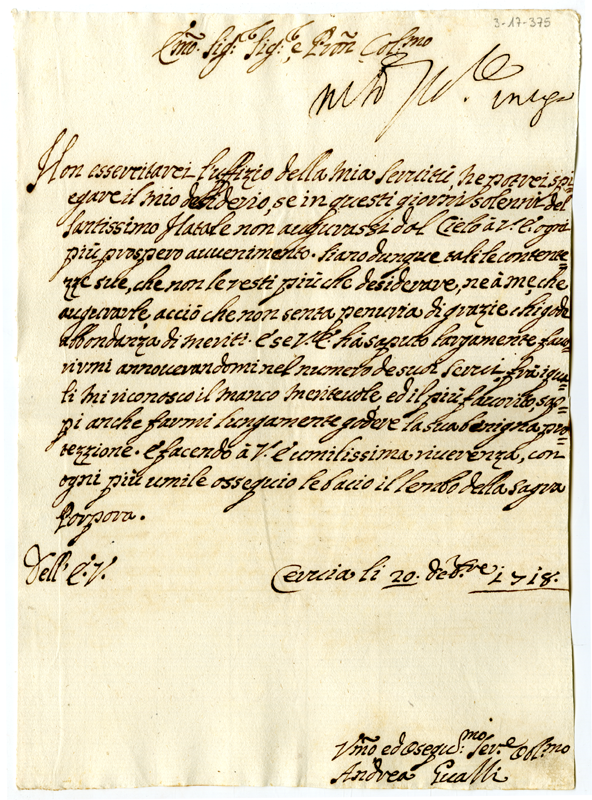 3-17-375
Em̃o. Sig.r Sig.r e Prõn Col.mo
Non essercitarei l'uffizio della mia Servitù, ne potrei spi=
egare il mio desiderio, se in questi giorni solenni del
Santissimo Natale non augurassi dal Cielo à V. E. ogni
più prospero avvenimento. Siano dunque tali le contente=
zze sue, che non le resti più che desiderare, ne à me, che
augurarle, acciò che non senta penuria di grazie chi gode
abbondanza di meriti. E se V. E. hà saputo largamente favo=
rirmi annoverandomi nel numero de suoi Servi, frà i qua=
li mi riconosco il manco meritevole ed il più favorito, sap=
pi anche farmi lungamente godere la sua benigna pro=
tezzione. E facendo à V. E. umilissima riverenza, con
ogni più umile ossequio le bacio il lembo della sagra
Porpora.
Dell' E. V.
Cervia li 20. Xbre. 1718.
Vm̃o ed Osseq.mo Ser.e Obl.mo
Andrea Gualli